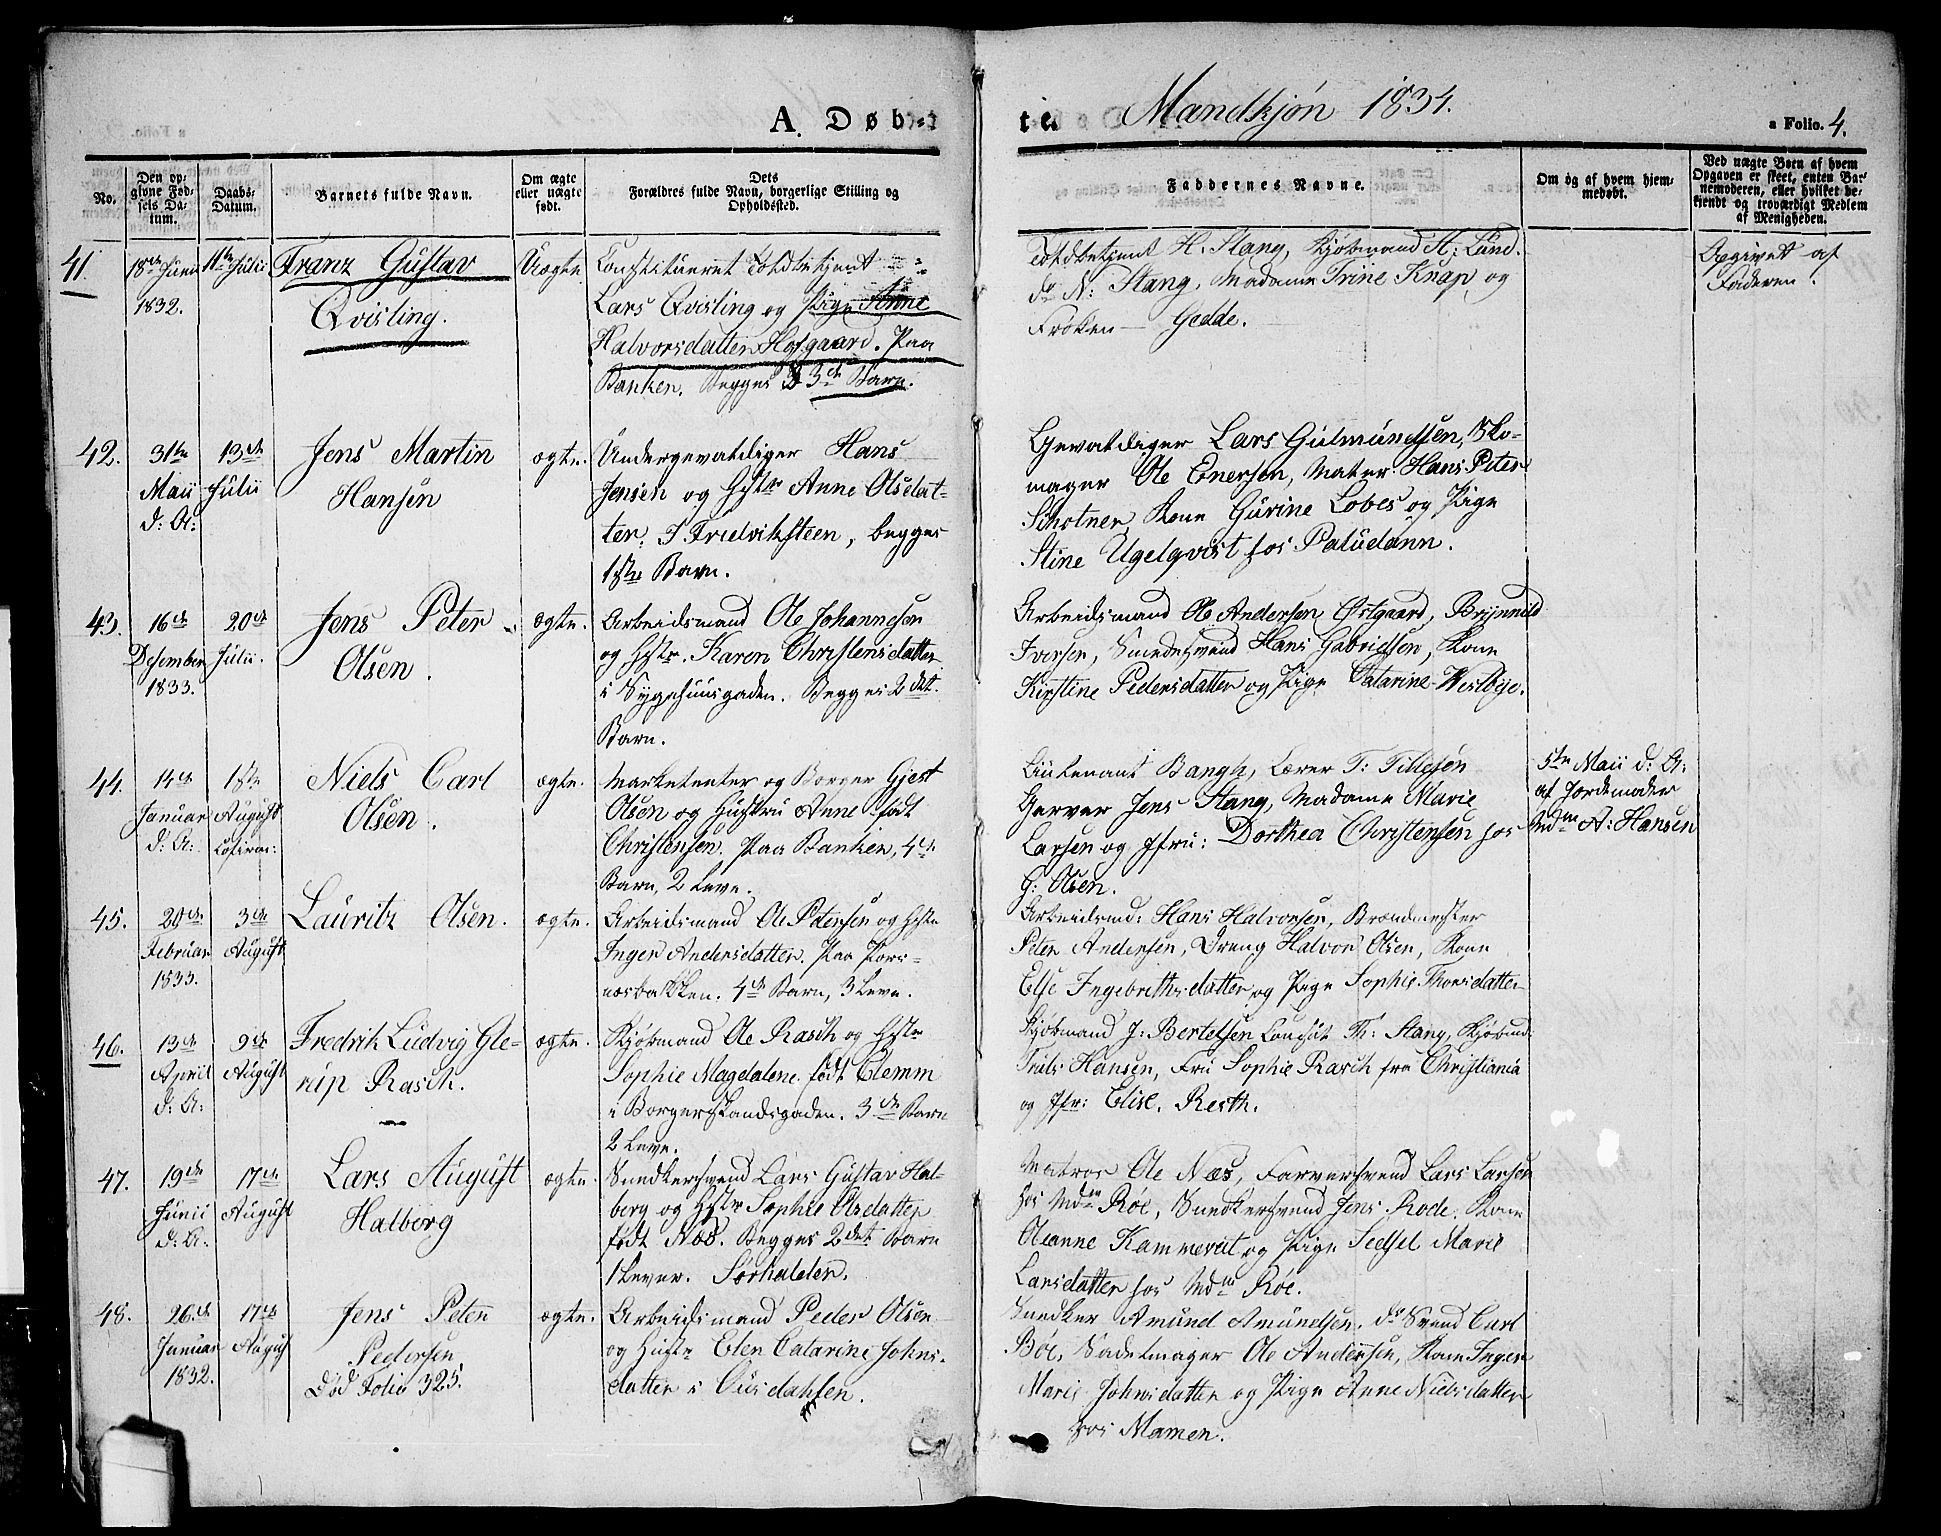 A. Døbte. Mandkjøn 1834.
a Folio. 4.
No.
Den opgivne Fødsels Datum.
Daabs-Datum.
Barnets fulde Navn.
Om ægte eller uægte født.
Dets Forældres fulde Navn, borgerlige Stilling og Opholdssted.
Faddernes Navne.
Om og af hvem hjemmedøbt.
Ved uægte Børn af hvem Opgaven er skeet, enten Barnemoderen, eller hvilket bekjendt og troværdigt Medlem af Menigheden.
41.
18de Junii
1832.
11te Julii
Franz Gustav
Qvisling.
Uægte
Constitueret Toldbetjent
Lars Qvisling og Pige Anne
Halvorsdatter Hofgaard. Paa
Banken. Begges 3de Barn.
Toldbetjent H. Stang, Kjøbmand H: Lund.
do N: Stang, Madame Trine Knap, og
Frøken — Gedde.
Opgivet af
Faderen.
42.
31te
Maii
d: A:
13de
Julii
Jens Martin
Hansen
ægte.
Undergevaldiger Hans
Jensen og Hstr Anne Olsdat-
ter. I Fredriksteen, begges
1ste Barn.
Gevaldiger Lars Gulmundsen, Sko-
mager Ole Enersen, Matr. Hans Peter
Schotner, Kone Gurine Lobes og Pige
Stine Ugelqvist hos Paludann.
43.
16de
Desember
1833.
20de
Julii.
Jens Peter
Olsen.
ægte.
Arbeidsmand Ole Johannesen
og Hstr. Karen Christensdatter
i Sygehuusgaden. Begges 2det
Barn.
Arbeidsmand Ole Andersen Østgaard, Brynnild
Iversen, Smedesvend Hans Gabrielsen, Kone
Kirstine Pedersdatter og Pige Catarine Westbye.
44.
14de
Januar
d: A:
1ste
August
Niels Carl
Olsen.
ægte.
Marketenter og Borger Gjest
Olsen og Hustru Anne født
Christensen. Paa Banken, 4de
Barn, 2 Leve.
Lieutenant Bangh, Lærer T: Tillesen
Garver Jens Stang, Madame Marie
Larsen og Jfru: Dorthea Christensen hos
G: Olsen.
5te Maii d: A:
af Jordemoder
Mdm A: Hansen
45.
20de
Februar
1833.
3de
August
Lauritz Olsen.
ægte.
Arbeidsmand Ole Petersen og Hstr
Inger Andersdatter. Paa Pors-
næsbakken. 4de Barn, 3 Leve.
Arbeidsmd: Hans Halvorsen, Brandmester
Peter Andersen, Dreng Halvor Olsen, Kone
Else Ingebrethsdatter og Pige Sophie Thorsdatter
46.
13de
April
d: A:
9de
August
Fredrik Ludvig Gle-
rup Rasch.
ægte.
Kjøbmand Ole Rasch og Hstr
Sophie Magdalene født Clemm
i Borgerskandsgaden. 3de Barn
2 Leve.
Kjøbmand J: Bertelsen, Consul Th: Stang, Kjøbmd
Truls Hansen, Fru Sophie Rasch fra Christiania
og Jfr: Elise Resth.
47.
19de
Junii
d: A:
17de
August
Lars August
Halborg
ægte.
Snedkersvend Lars Gustav Hal-
borg og Hstr Sophie Olsdatter
født Næs. Begges 2det Barn
1 Lever. Sørhalden.
Matros Ole Næs, Farversvend Lars Larsen
hos Mdm Røe, Snedkersvend Jens Rode, Kone
Oleanne Kammeret og Pige Sedsel Marie
Larsdatter hos Mdm Røe.
48.
26de
Januar
1832.
17de
August
Jens Peter
Pedersen.
Død Folio 325.
ægte.
Arbeidsmand Peder Olsen
og Hustr. Elen Catarine Johns-
datter i Ousdahlen.
Snedker Amund Amundsen, do Svend Carl
Bøe, Sadelmager Ole Andersen, Kone Inger
Marie Johnsdatter og Pige Anne Nielsdatter
hos Mamen.